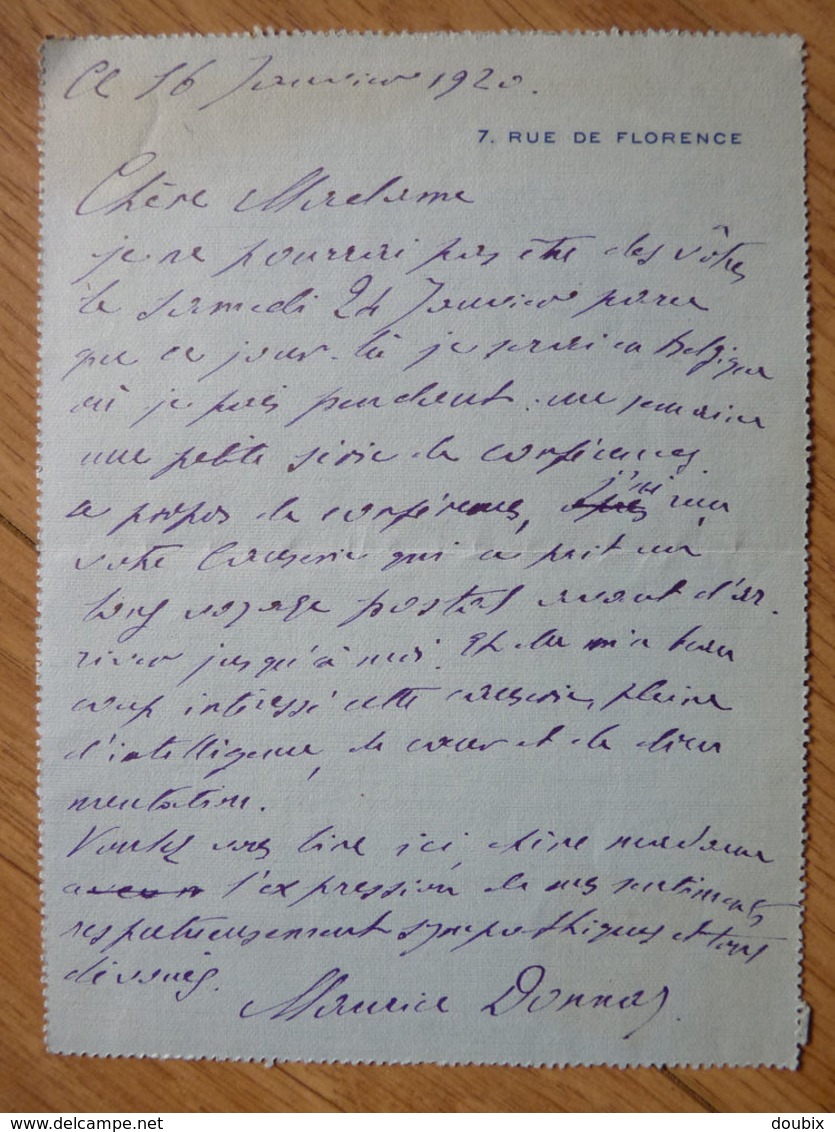 Ce 16 Janvier 1920.
7. RUE DE FLORENCE
Chère Madame
je ne pourrai pas être des vôtres
le samedi 24 Janvier parce
que ce jour-là je serai en Belgique
où je fais pendant une semaine
une petite série de conférences.
a propos de conférences, j'ai reçu
votre Causerie qui a fait un
long voyage postal avant d'ar-
river jusqu'à moi. Elle m'a beau
coup intéressé cette causerie, pleine
d'intelligence, de cœur et de docu
mentation.
Voulez vous lire ici, chère madame
l'expression de mes sentiments
respectueusement sympathiques et tout
dévoués.
Maurice Donnay.
delcampe.net
doubix